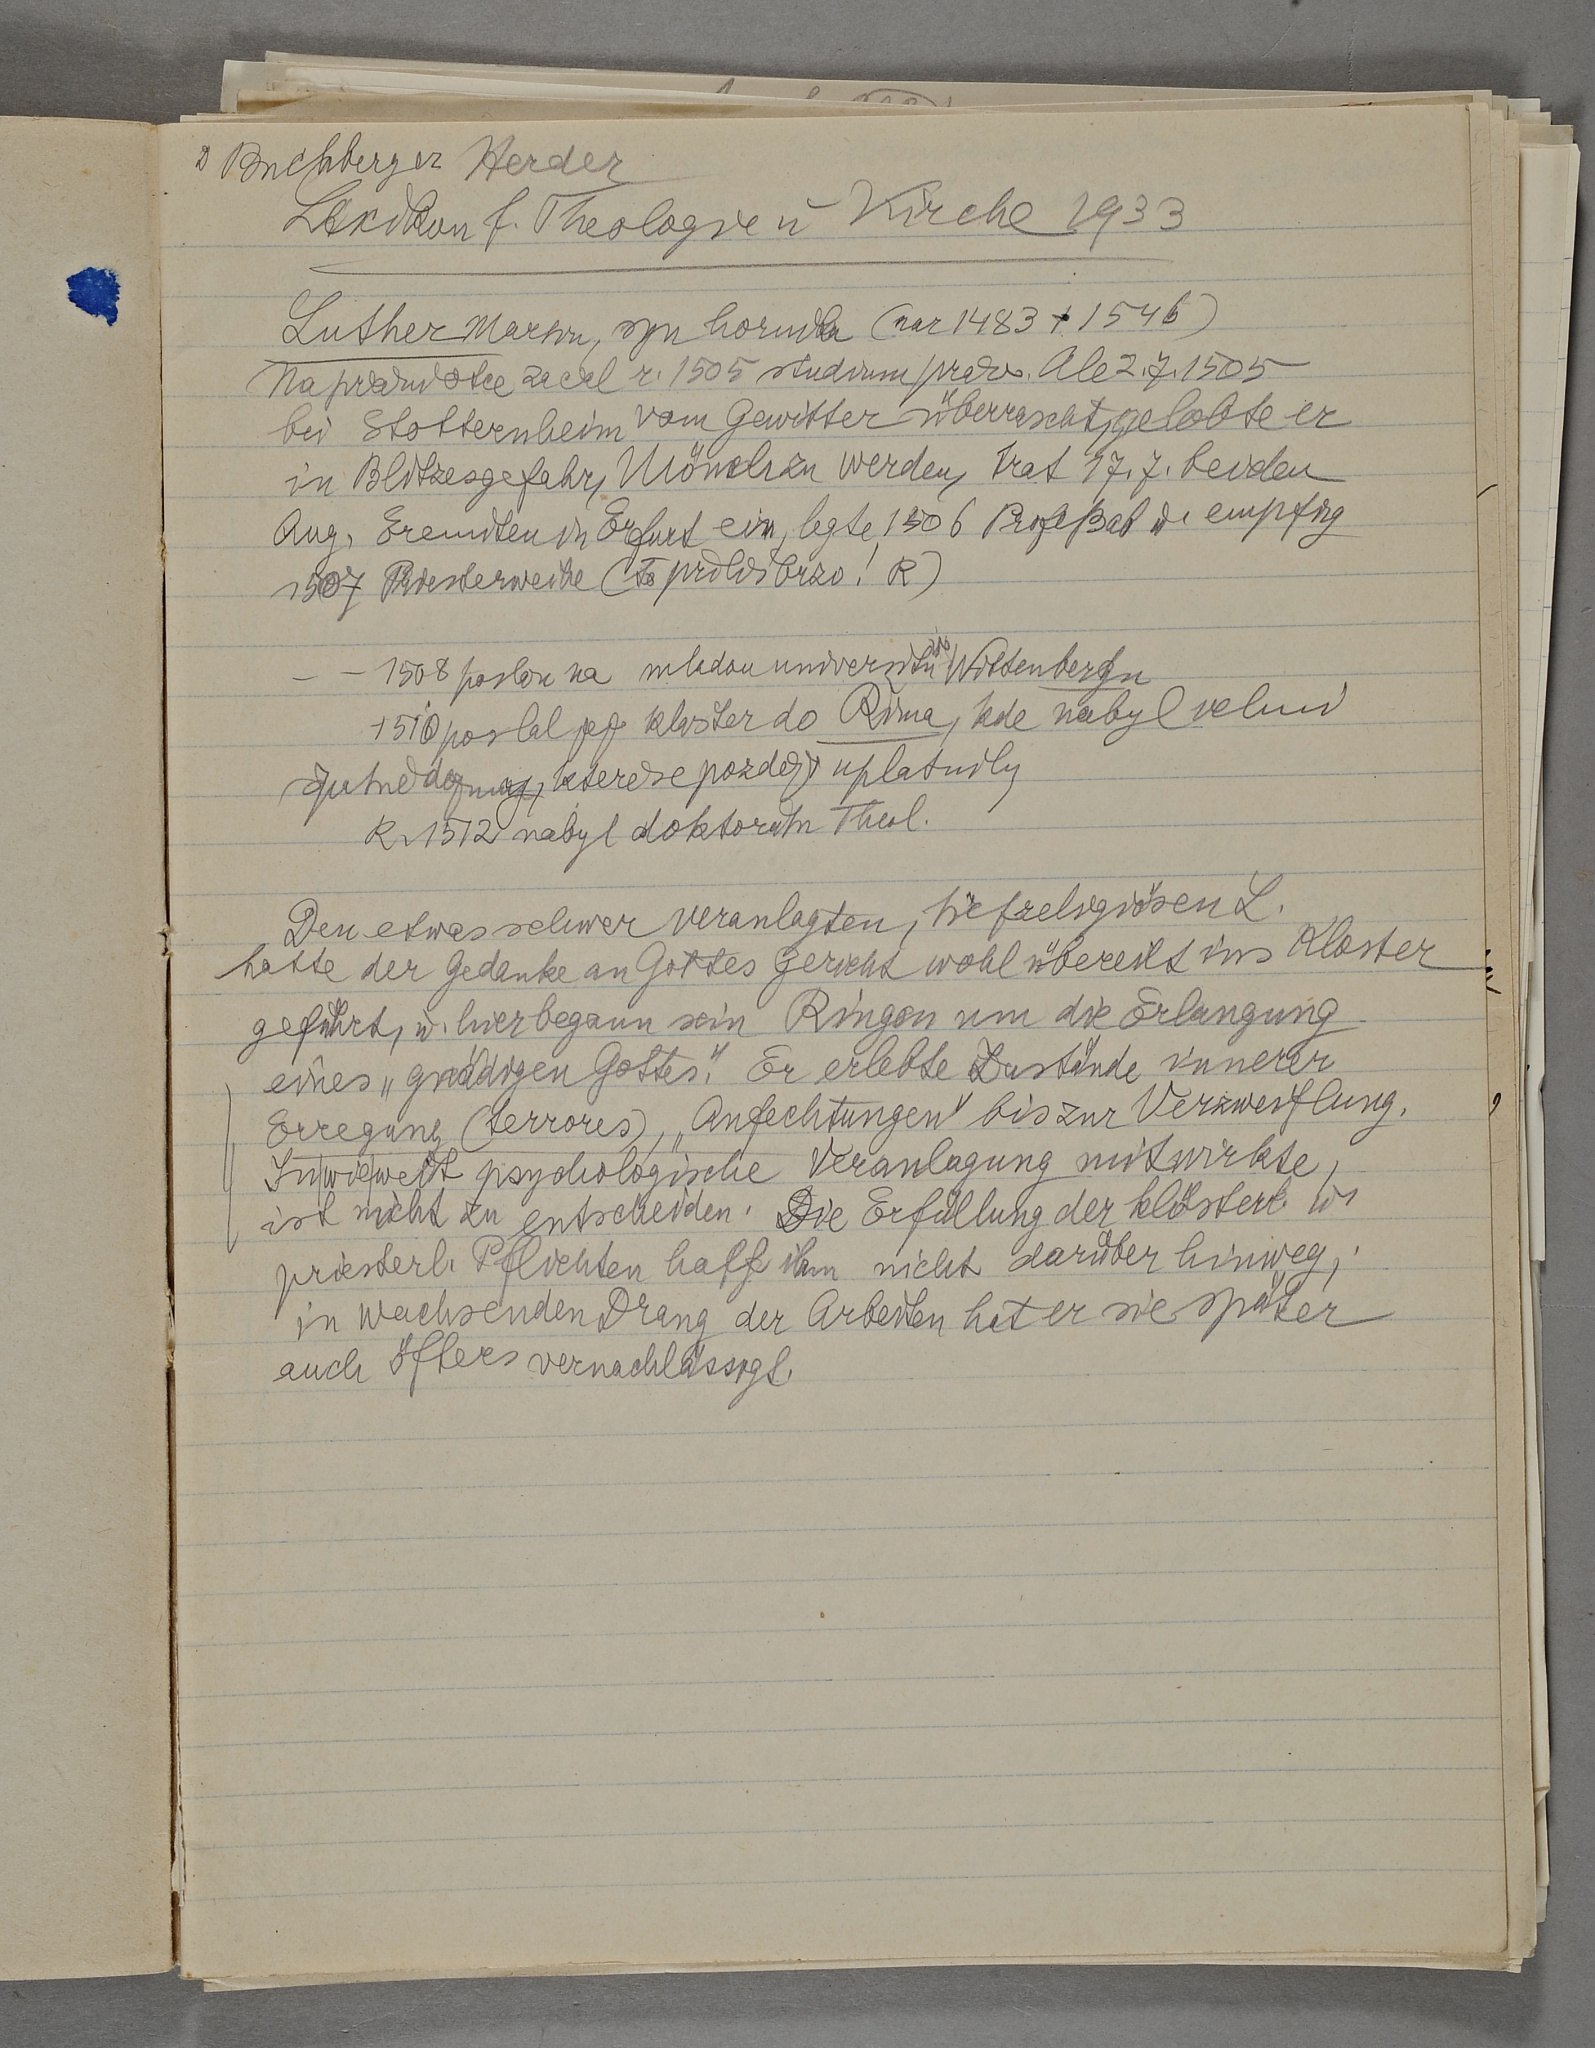 D Buchberger Herder
Lexikon f. Theologie u Kirche 1933
Luther Martin, syn horníka (nar 1483 † 1546)
Na přání otce začal r. 1505 studium práv. Ale 2.7.1505
bei Stotternheim vom Gewitter überrascht, gelobte er
in Blitzesgefahr, Mönch zu werden, trat 17.7. bei den
Aug. Eremiten in Erfurt ein, legte 1506 Profeß ab u. empfing
1507 Priesterweihe (to příliš brzo! R)
– – 1508 poslán na mladou universitu do Wittenbergu
1510 poslal jej klášter do Říma, kde nabyl velmi
špatné dojmy, které se později uplatnily
R. 1512 nabyl doktorátu Theol.
Den etwas schwer veranlagten, tiefreligiösen L.
hatte der Gedanke an Gottes Gericht wohl übereilt ins Kloster
geführt, u. hier begann sein Ringen um die Erlangung
eines „gnädigen Gottes". Er erlebte Zustände innerer
Erregung (terrores), „Anfechtungen" bis zur Verzweiflung.
Inwieweit psychologische Veranlagung mitwirkte,
ist nicht zu entscheiden. Die Erfüllung der klösterl. u.
priesterl. Pflichten half ihm nicht darüber hinweg,
in wachsenden Drang der Arbeiten hat er sie später
auch öfters vernachlässigt.